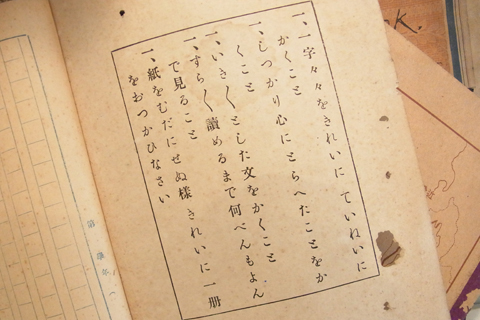 一、一字々々をきれいに ていねいに
かくこと
一、しつかり心にとらへたことをか
くこと
一、いき〳〵とした文をかくこと
一、すら〳〵讀めるまで何べんもよん
で見ること
一、紙をむだにせぬ樣きれいに一册
をおつかひなさい
第
K.